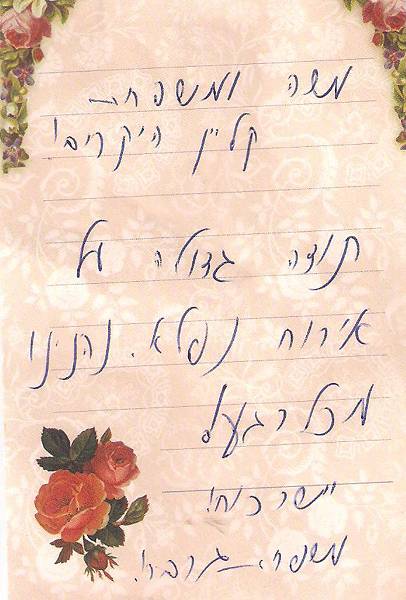 משה ומשפחת
קליין היקרים!
תודה גדולה על
אירוח נפלא. נהנינו
מכל רגע!
יישר כוח!
משפחת